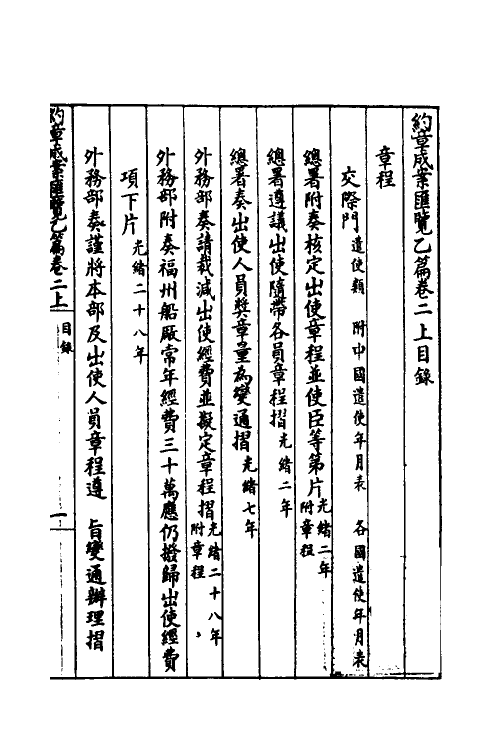 約章成案匯覽乙篇卷二上目錄
章程
交際門 遣使類 附中國遣使年月表 各國遣使年月表
總署附奏核定出使章程並使臣等第片 光緒二年 附章程
總署遵議出使隨帶各員章程摺 光緒二年
總署奏出使人員獎章量為變通摺 光緒七年
外務部奏請裁減出使經費並擬定章程摺 光緒二十八年 附章程
外務部附奏福州船厰常年經費三十萬應仍撥歸出使經費
項下片 光緒二十八年
外務部奏謹將本部及出使人員章程遵 旨變通辦理摺
約章成案匯覽乙篇卷二上 目錄 一